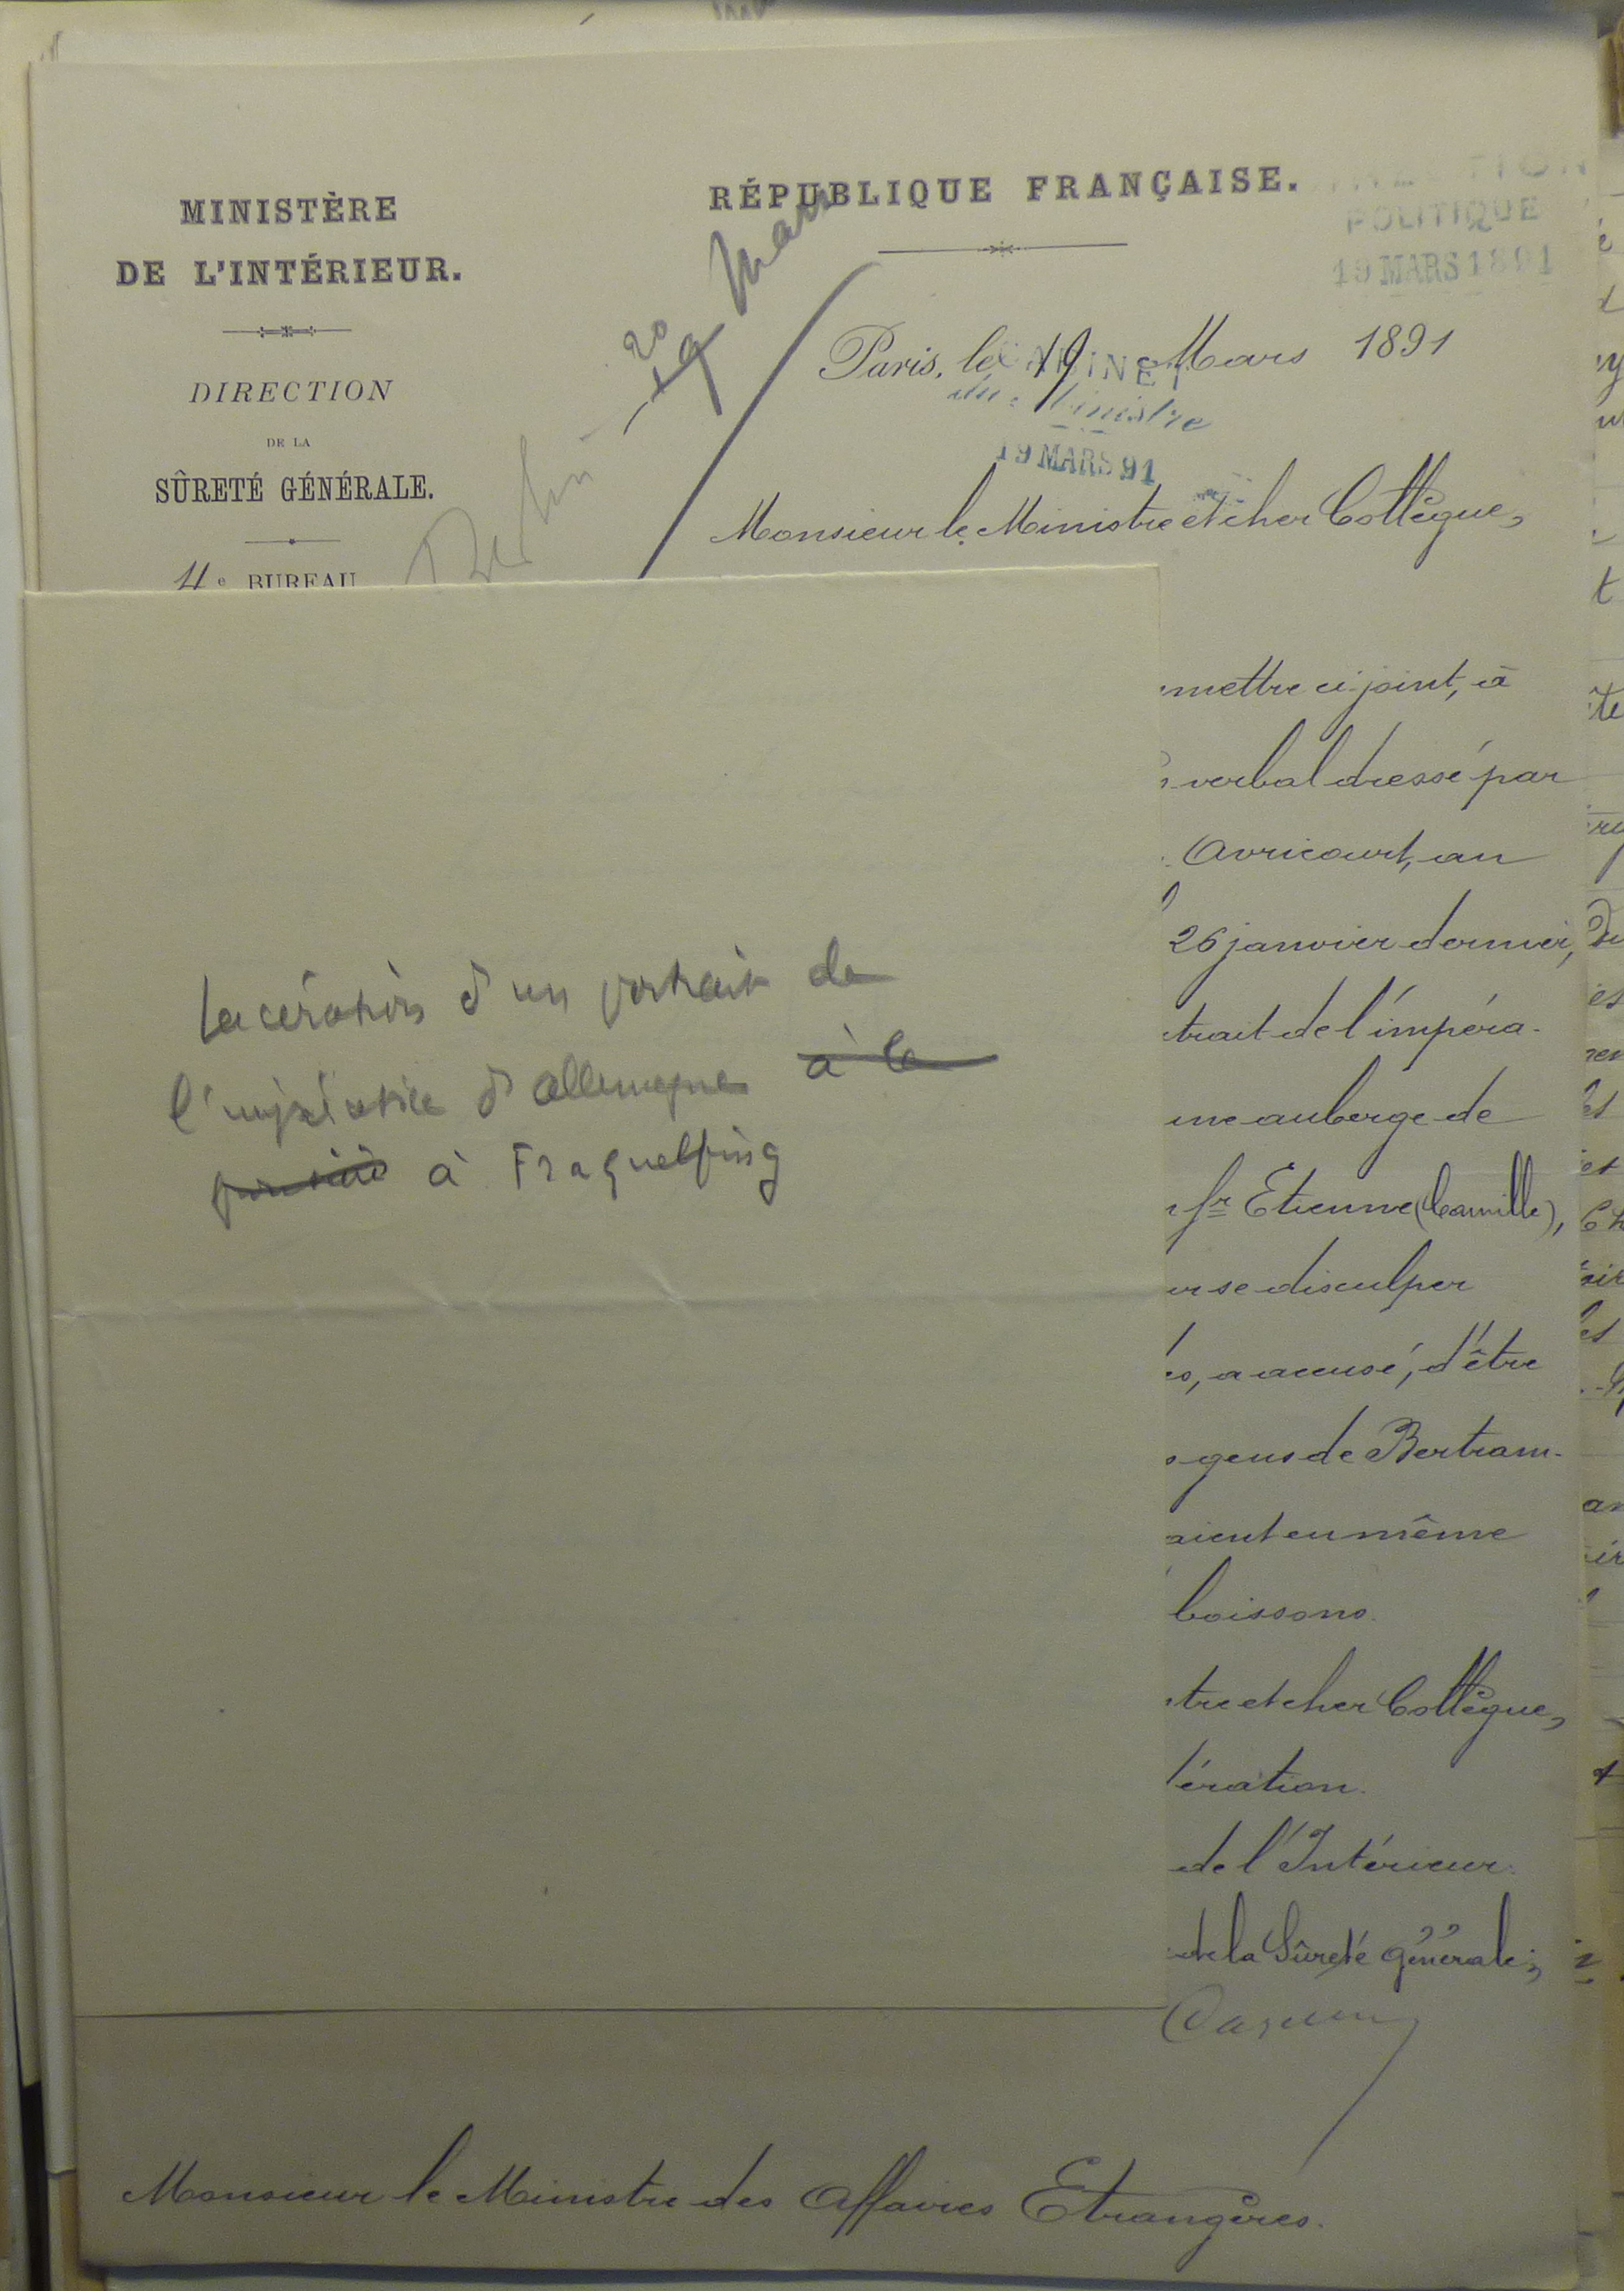 MINISTÈRE
DE L'INTÉRIEUR.
DIRECTION
DE LA
SÛRETÉ GÉNÉRALE.
4e BUREAU
RÉPUBLIQUE FRANÇAISE.
POLITIQUE
19 MARS 1891
20
19 mars
Berlin
Paris, le 19 Mars 1891
CABINET
du Ministre
19 MARS 91
Monsieur le Ministre et cher Collègue,
mettre ci-joint, à
verbal dressé par
Avricourt, au
26 janvier dernier,
trait de l'impéra-
une auberge de
Sr Etienne (Camille),
se disculper
a accusé, d'être
gens de Bertram-
aient en même
boissons.
tre et cher Collègue,
ération.
de l'Intérieur
de la Sûreté générale,
Lacération d'un portrait de
l'impératrice d'allemagne à la
à Fraquelfing
Monsieur le Ministre des Affaires Etrangères.